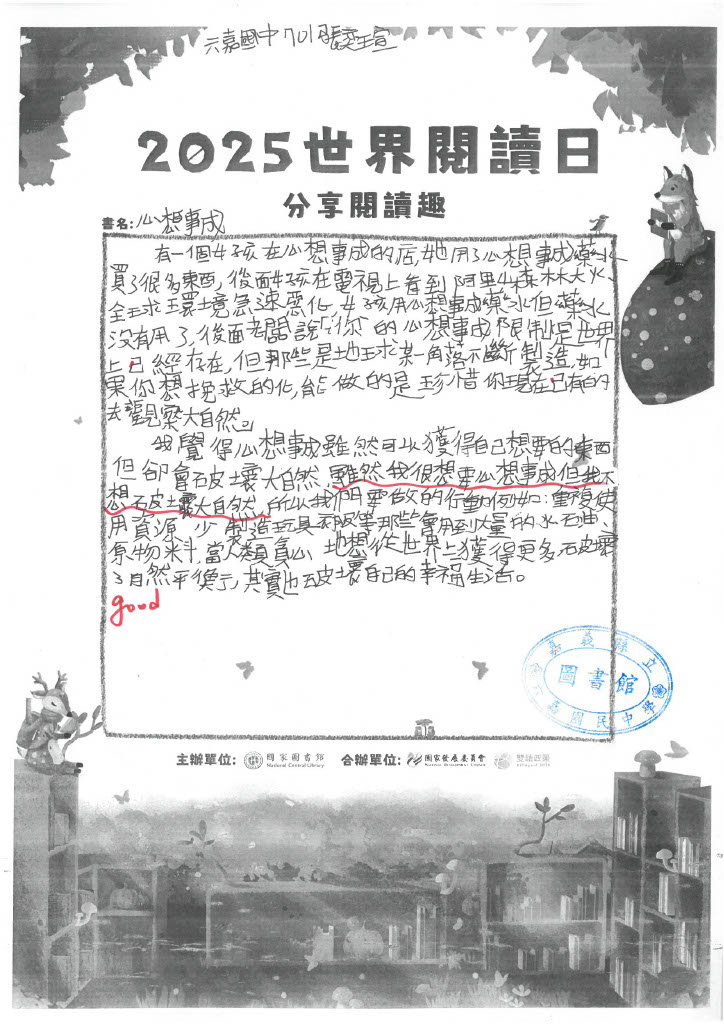 六嘉國中701張奕瑄
2025世界閱讀日
分享閱讀趣
書名:心想事成
有一個女孩在心想事成的店,她用了心想事成藥水
買了很多東西,後面女孩在電視上看到阿里山森林大火、
全球環境急速惡化,女孩用心想事成藥水但藥水
沒有用了,後面老闆說「你的心想事成限制是世界
上已經存在,但那些是地球某一角落不斷製造,如
果你想挽救的化,能做的是珍惜你現在已有的
去觀察大自然。」
我覺得心想事成雖然可以獲得自己想要的東西
但卻會破壞大自然,雖然我很想要心想事成但我不
想破壞大自然,所以我們要做的行動例如:重複使
用資源、少製造玩具衣服等那些會用到大量的水石油、
原物料,當人類貪心地想從世界上獲得更多破壞
了自然平衡亓,其實也破壞自己的幸福生活。
good
嘉義縣立
圖書館
六嘉國民中學
主辦單位: 國家圖書館 合辦單位: 國家發展委員會 雙語政策
National Central Library National Development Council Bilingual 2030